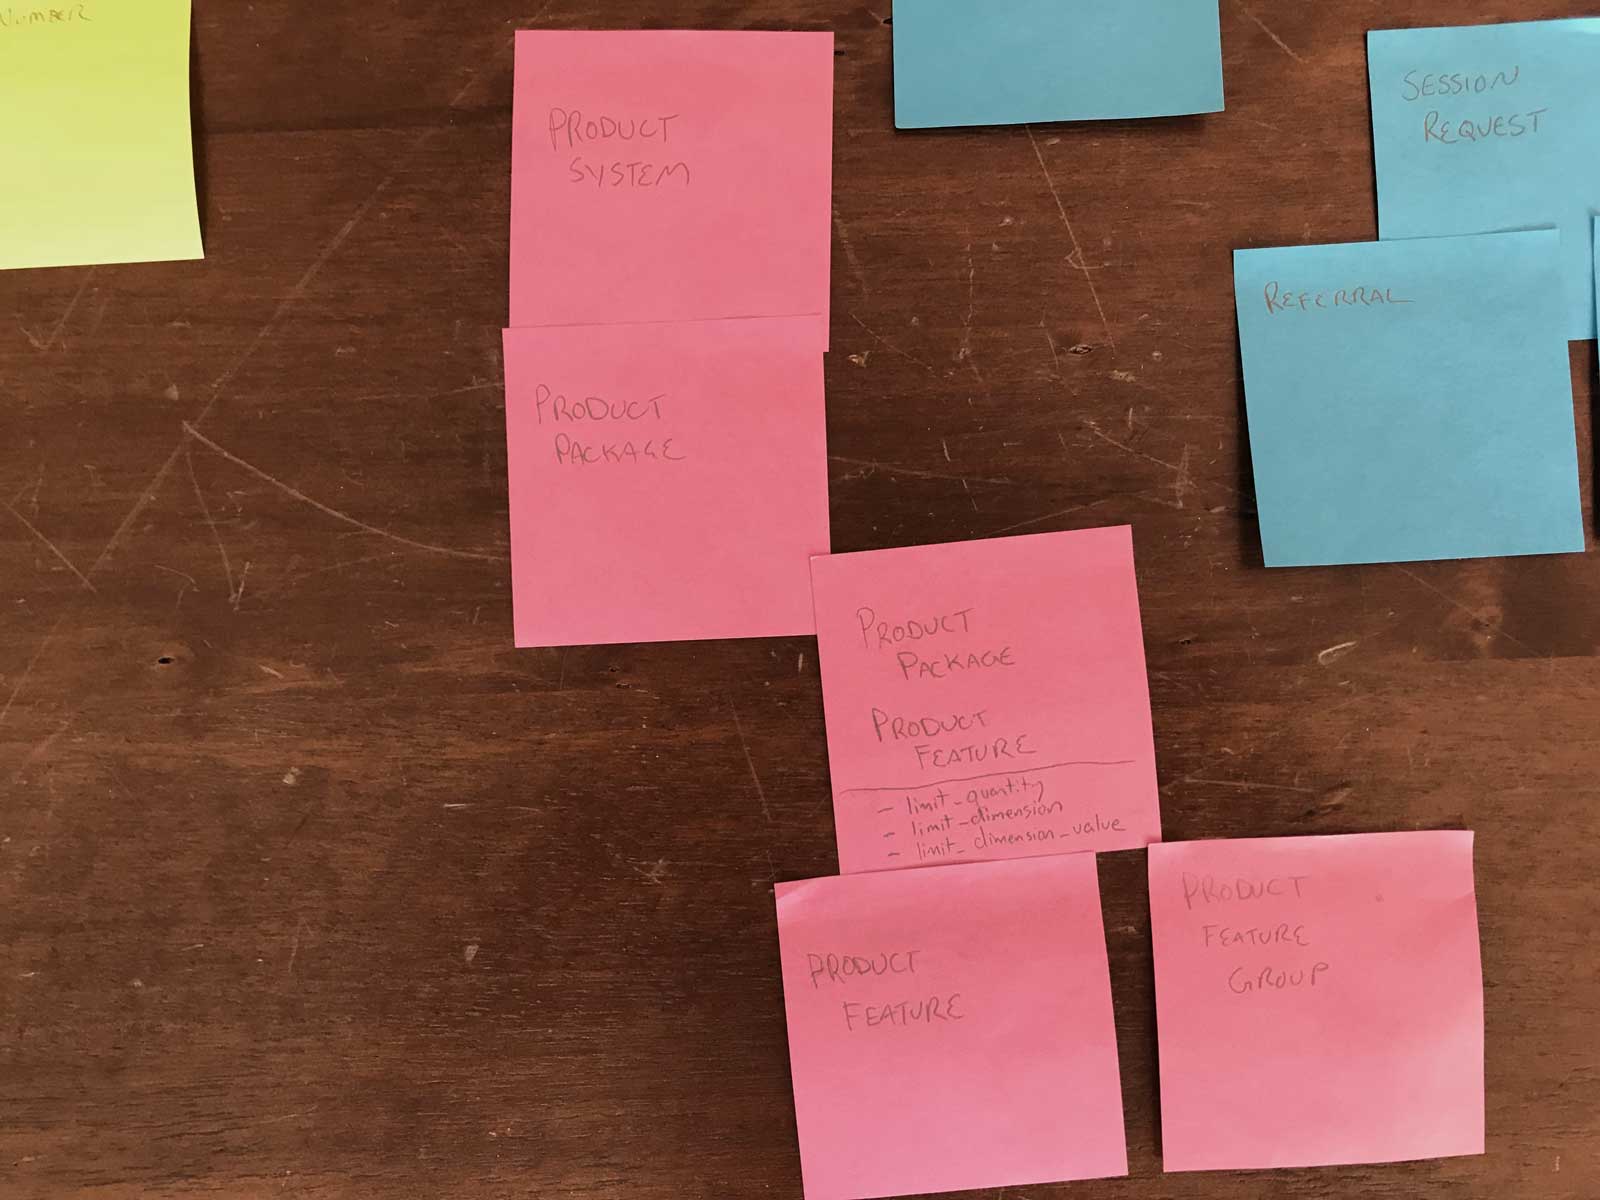 NUMBER
PRODUCT
SYSTEM
SESSION
REQUEST
REFERRAL
PRODUCT
PACKAGE
PRODUCT
PACKAGE
PRODUCT
FEATURE
- limit_quantity
- limit_dimension
- limit_dimension_value
PRODUCT
FEATURE
PRODUCT
FEATURE
GROUP